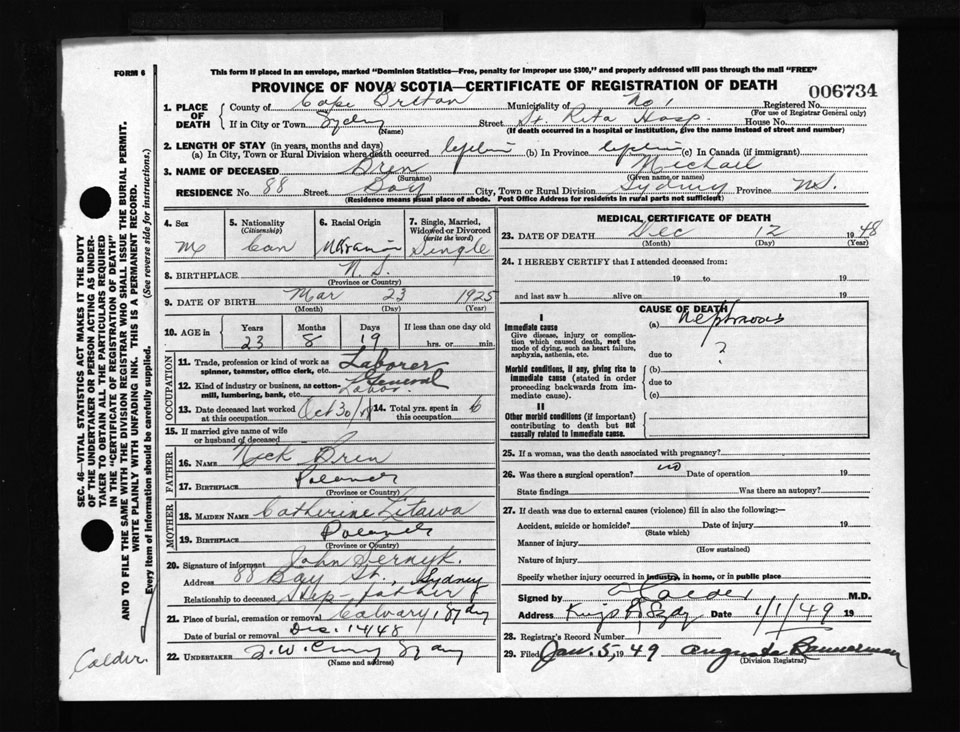 FORM 6
This form if placed in an envelope, marked "Dominion Statistics—Free, penalty for improper use $300," and properly addressed will pass through the mail "FREE"
PROVINCE OF NOVA SCOTIA—CERTIFICATE OF REGISTRATION OF DEATH
006734
1. PLACE OF DEATH County of Cape Breton Municipality of No 1 Registered No.
(For use of Registrar General only)
If in City or Town Sydney Street St. Rita Hosp. House No.
(Name) (If death occurred in a hospital or institution, give the name instead of street and number)
2. LENGTH OF STAY (in years, months and days)
(a) In City, Town or Rural Division where death occurred (b) In Province (c) In Canada (if immigrant)
3. NAME OF DECEASED Bren Michael
(Surname) (Given name or names)
RESIDENCE No. 88 Street Bay City, Town or Rural Division Sydney Province N.S.
(Residence means usual place of abode. Post Office Address for residents in rural parts not sufficient)
4. Sex M
5. Nationality (Citizenship) Can
6. Racial Origin
7. Single, Married, Widowed or Divorced (write the word) Single
8. BIRTHPLACE N.S.
(Province or Country)
9. DATE OF BIRTH Mar 23 1925
(Month) (Day) (Year)
10. AGE in Years Months Days If less than one day
23 8 19 hrs. or min.
OCCUPATION
11. Trade, profession or kind of work as spinner, teamster, office clerk, etc. Laborer
12. Kind of industry or business, as cotton-mill, lumbering, bank, etc. General Labor
13. Date deceased last worked at this occupation Oct 30/48 14. Total yrs. spent in this occupation 6
15. If married give name of wife or husband of deceased
FATHER
16. NAME Nick Bren
17. BIRTHPLACE Poland
(Province or Country)
MOTHER
18. MAIDEN NAME Catherine Litawa
19. BIRTHPLACE Poland
(Province or Country)
20. Signature of informant John
Address 88 Bay St., Sydney
Relationship to deceased Step-father
21. Place of burial, cremation or removal Calvary, Sydney
Date of burial or removal Dec. 14/48
22. UNDERTAKER
(Name and address)
MEDICAL CERTIFICATE OF DEATH
23. DATE OF DEATH Dec 12 1948
(Month) (Day) (Year)
24. I HEREBY CERTIFY that I attended deceased from:
19 to 19
and last saw h alive on 19
CAUSE OF DEATH
I
Immediate cause (a)
Give disease, injury or complication which caused death, not the mode of dying, such as heart failure, asphyxia, asthenia, etc.
due to ?
Morbid conditions, if any, giving rise to immediate cause (stated in order proceeding backwards from immediate cause).
(b)
due to
(c)
II
Other morbid conditions (if important) contributing to death but not causally related to immediate cause.
25. If a woman, was the death associated with pregnancy?
26. Was there a surgical operation? no Date of operation 19
State findings Was there an autopsy?
27. If death was due to external causes (violence) fill in also the following:—
Accident, suicide or homicide? Date of injury 19
(State which)
Manner of injury
(How sustained)
Nature of injury
Specify whether injury occurred in industry, in home, or in public place
Signed by Calder M.D.
Address Date 1/1/49 19
28. Registrar's Record Number
29. Filed Jan. 5, 1949 Augusta Bannerman
(Division Registrar)
SEC. 46—VITAL STATISTICS ACT MAKES IT THE DUTY
OF THE UNDERTAKER OR PERSON ACTING AS UNDER-
TAKER TO OBTAIN ALL THE PARTICULARS REQUIRED
IN THE "CERTIFICATE OF REGISTRATION OF DEATH"
AND TO FILE THE SAME WITH THE DIVISION REGISTRAR WHO SHALL ISSUE THE BURIAL PERMIT.
WRITE PLAINLY WITH UNFADING INK. THIS IS A PERMANENT RECORD.
Every item of information should be carefully supplied. (See reverse side for instructions.)
Calder.